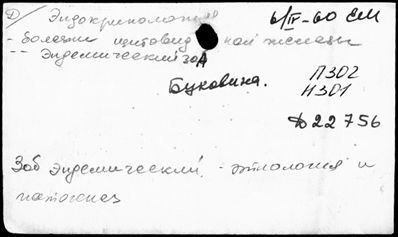 Д/ Эндокринология 6/IV-60 ЕМ
- болезни щитовидной железы
-- Эндемический зоб
Буковина.
П302
И301
Д22756
Зоб эндемический - этиология и
патогенез